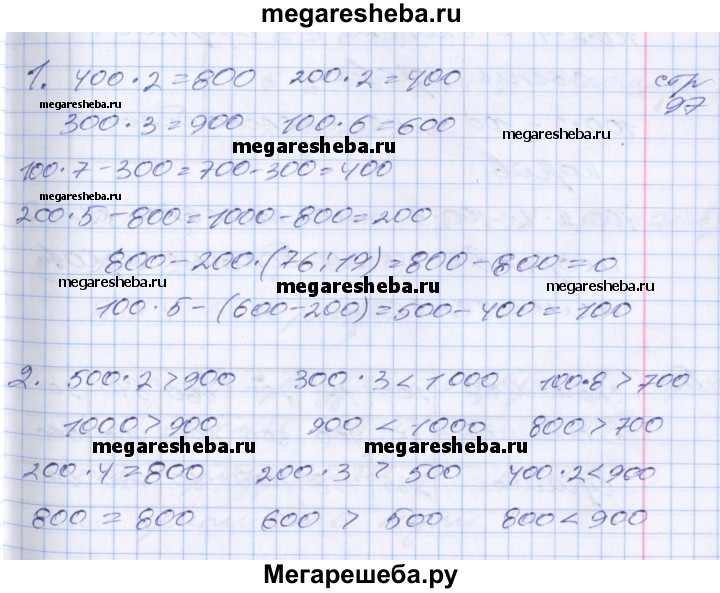 megaresheba.ru
1. 400·2=800 200·2=400 стр
megaresheba.ru 97
300·3=900 100·6=600
megaresheba.ru megaresheba.ru
100·7-300=700-300=400
megaresheba.ru
200·5-800=1000-800=200
800-200·(76:19)=800-800=0
megaresheba.ru megaresheba.ru megaresheba.ru
100·5-(600-200)=500-400=100
2. 500·2>900 300·3<1000 100·8>700
1000>900 900<1000 800>700
megaresheba.ru megaresheba.ru
200·4=800 200·3>500 400·2<900
800=800 600>500 800<900
Мегарешеба.ру